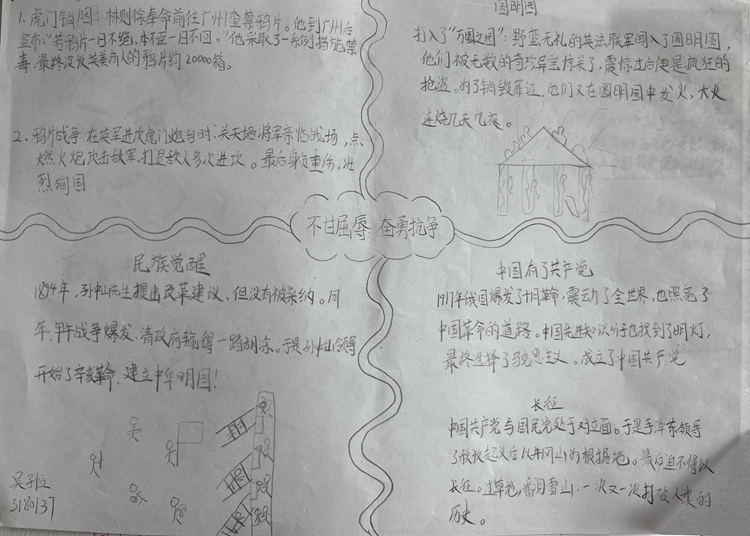 1.虎门销烟:林则徐奉命前往广州查禁鸦片。他到广州后
宣布:"若鸦片一日不绝,本大臣一日不回。"他采取了一系列措施禁
毒。最终没收英美商人的鸦片约20000箱。
2.鸦片战争 在英军进攻虎门炮台时,关天培将军亲临战场,点
燃火炮攻击敌军,打退敌人多次进攻。最后身负重伤,壮
烈殉国
圆明园
打入了"万园之园":野蛮无礼的英法联军闯入了圆明园,
他们被无数的奇珍异宝惊呆了,震惊过后便是疯狂的
抢盗。为了销毁罪证,他们又在圆明园中发火,大火
连烧几天几夜。
不甘屈辱 奋勇抗争
民族觉醒
1894年,孙中山先生提出改革建议,但没有被采纳。同
年,甲午战争爆发、清政府输得一踏胡涂。于是孙中山领导
开始了辛亥革命,建立中华明国!
吴子
3180137
中国有了共产党
1917年俄国爆发了十月革命,震动了全世界,也照亮了
中国革命的道路。中国先进知识分子也找到了明灯,
最终选择了马克思主义。成立了中国共产党
长征
中国共产党与国民党处于对立面。于是毛泽东领导
了秋收起义后从井冈山为根据地。最后迫不得以
长征。过草地,翻雪山,一次又一次打破人类的
历史。